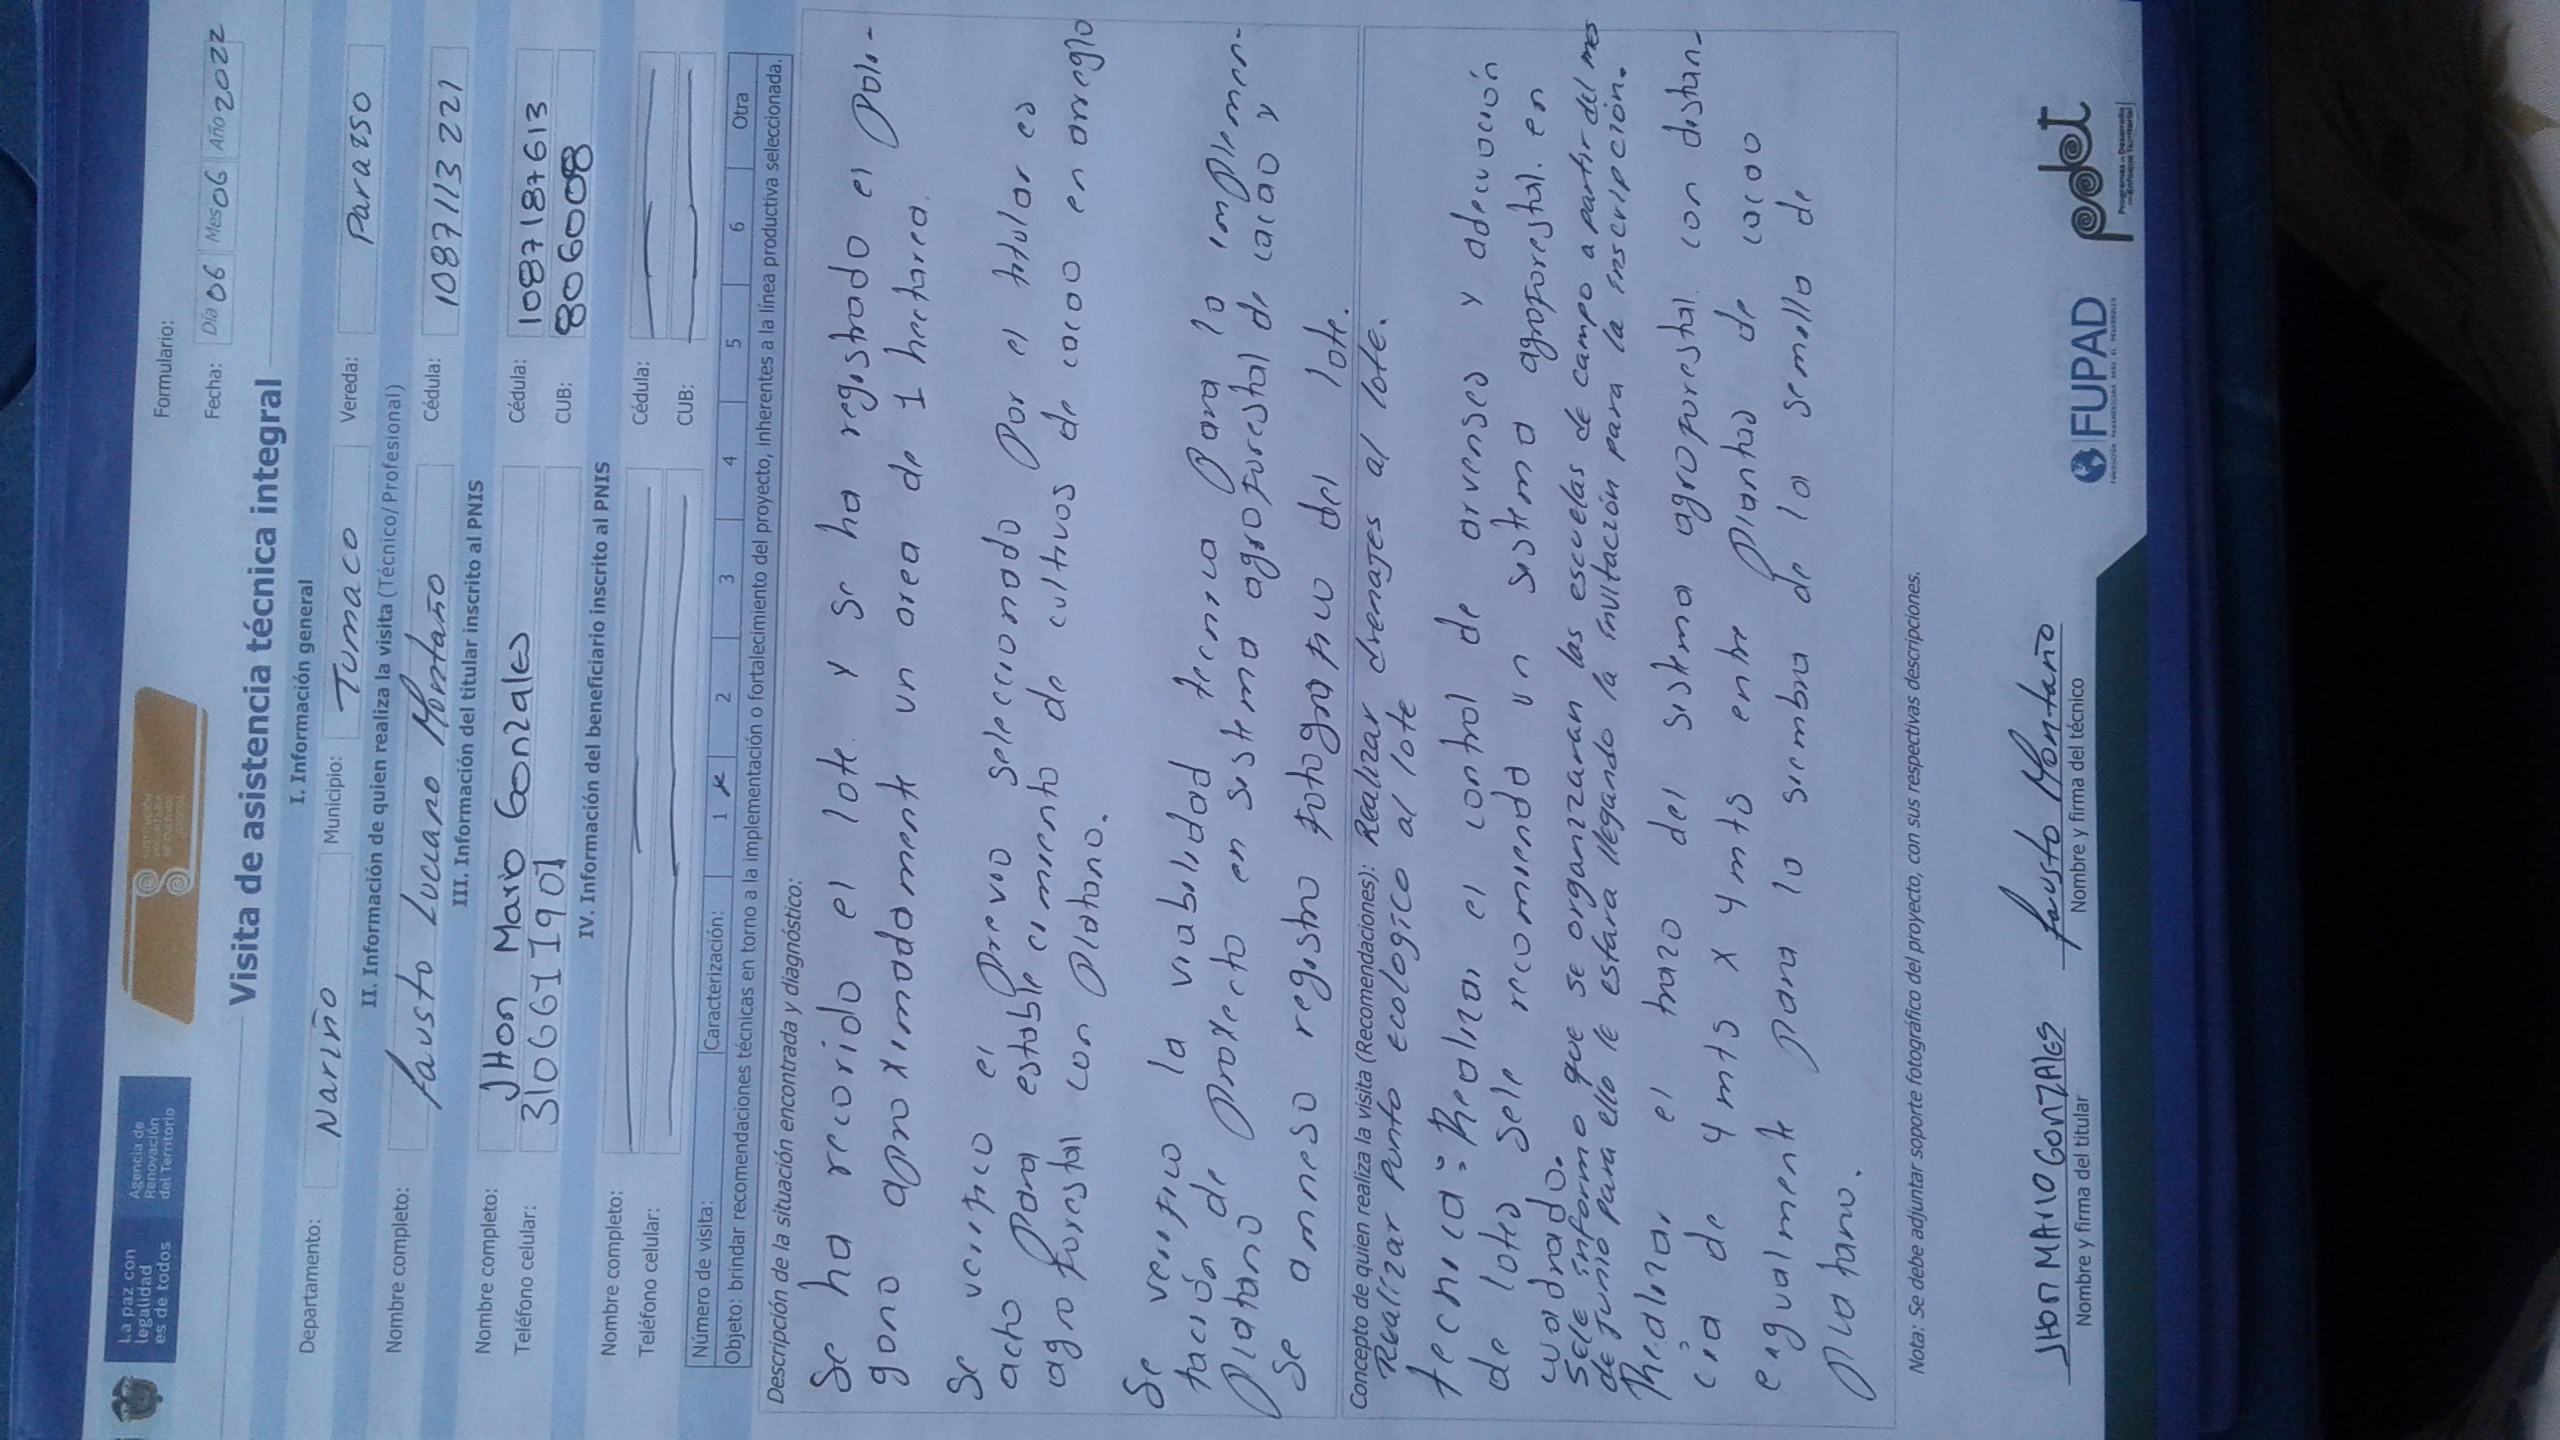 La paz con
legalidad
es de todos
Agencia de
Renovación
del Territorio
Formulario:
Fecha: Día 06 Mes 06 Año 2022
Visita de asistencia técnica integral
I. Información general
Departamento: Nariño Municipio: Tumaco Vereda: Paraiso
II. Información de quien realiza la visita (Técnico/Profesional)
Nombre completo: Fausto Luciano Montaño Cédula: 1087113221
III. Información del titular inscrito al PNIS
Nombre completo: JHon Mario Gonzales Cédula: 1087187613
Teléfono celular: 3106611901 CUB: 806008
IV. Información del beneficiario inscrito al PNIS
Nombre completo: Cédula:
Teléfono celular: CUB:
Número de visita: Caracterización: 1 x 2 3 4 5 6 Otra
Objeto: brindar recomendaciones técnicas en torno a la implementación o fortalecimiento del proyecto, inherentes a la línea productiva seleccionada.
Descripción de la situación encontrada y diagnóstico:
Se ha recorido el lote y se ha registrado el poli-
gono aproximadamente un area de 1 hectarea.
Se verifico el previo seleccionado por el titular es
acto para establecimiento de cultivos de cacao en arreglo
agroforestal con platano.
Se verifico la viabilidad tecnica para la implemen-
tación de proxecto en sistema agroforestal de cacao y
platano
Se anneso registro fotografico del lote.
Concepto de quien realiza la visita (Recomendaciones): Realizar drenajes al lote.
Realizar punto ecologico al lote
tecnica: Realizar el control de arvenses y adecuación
de lotes sele recomienda un sistema agroforestal en
cuadrado.
Sele informo que se organizaran las escuelas de campo a partir del mes
de junio para ello le estara llegando la invitación para la inscripción.
Realizar el trazo del sistema agroforestal con distan-
cia de 4 mts x 4 mts entre plantas de cacao
engualmente para la siembra de la semilla de
platano.
Nota: Se debe adjuntar soporte fotográfico del proyecto, con sus respectivas descripciones.
JHON MARIO GONZALES
Nombre y firma del titular
Fausto Montaño
Nombre y firma del técnico
FUPAD
pdet
Programas de Desarrollo
con Enfoque Territorial